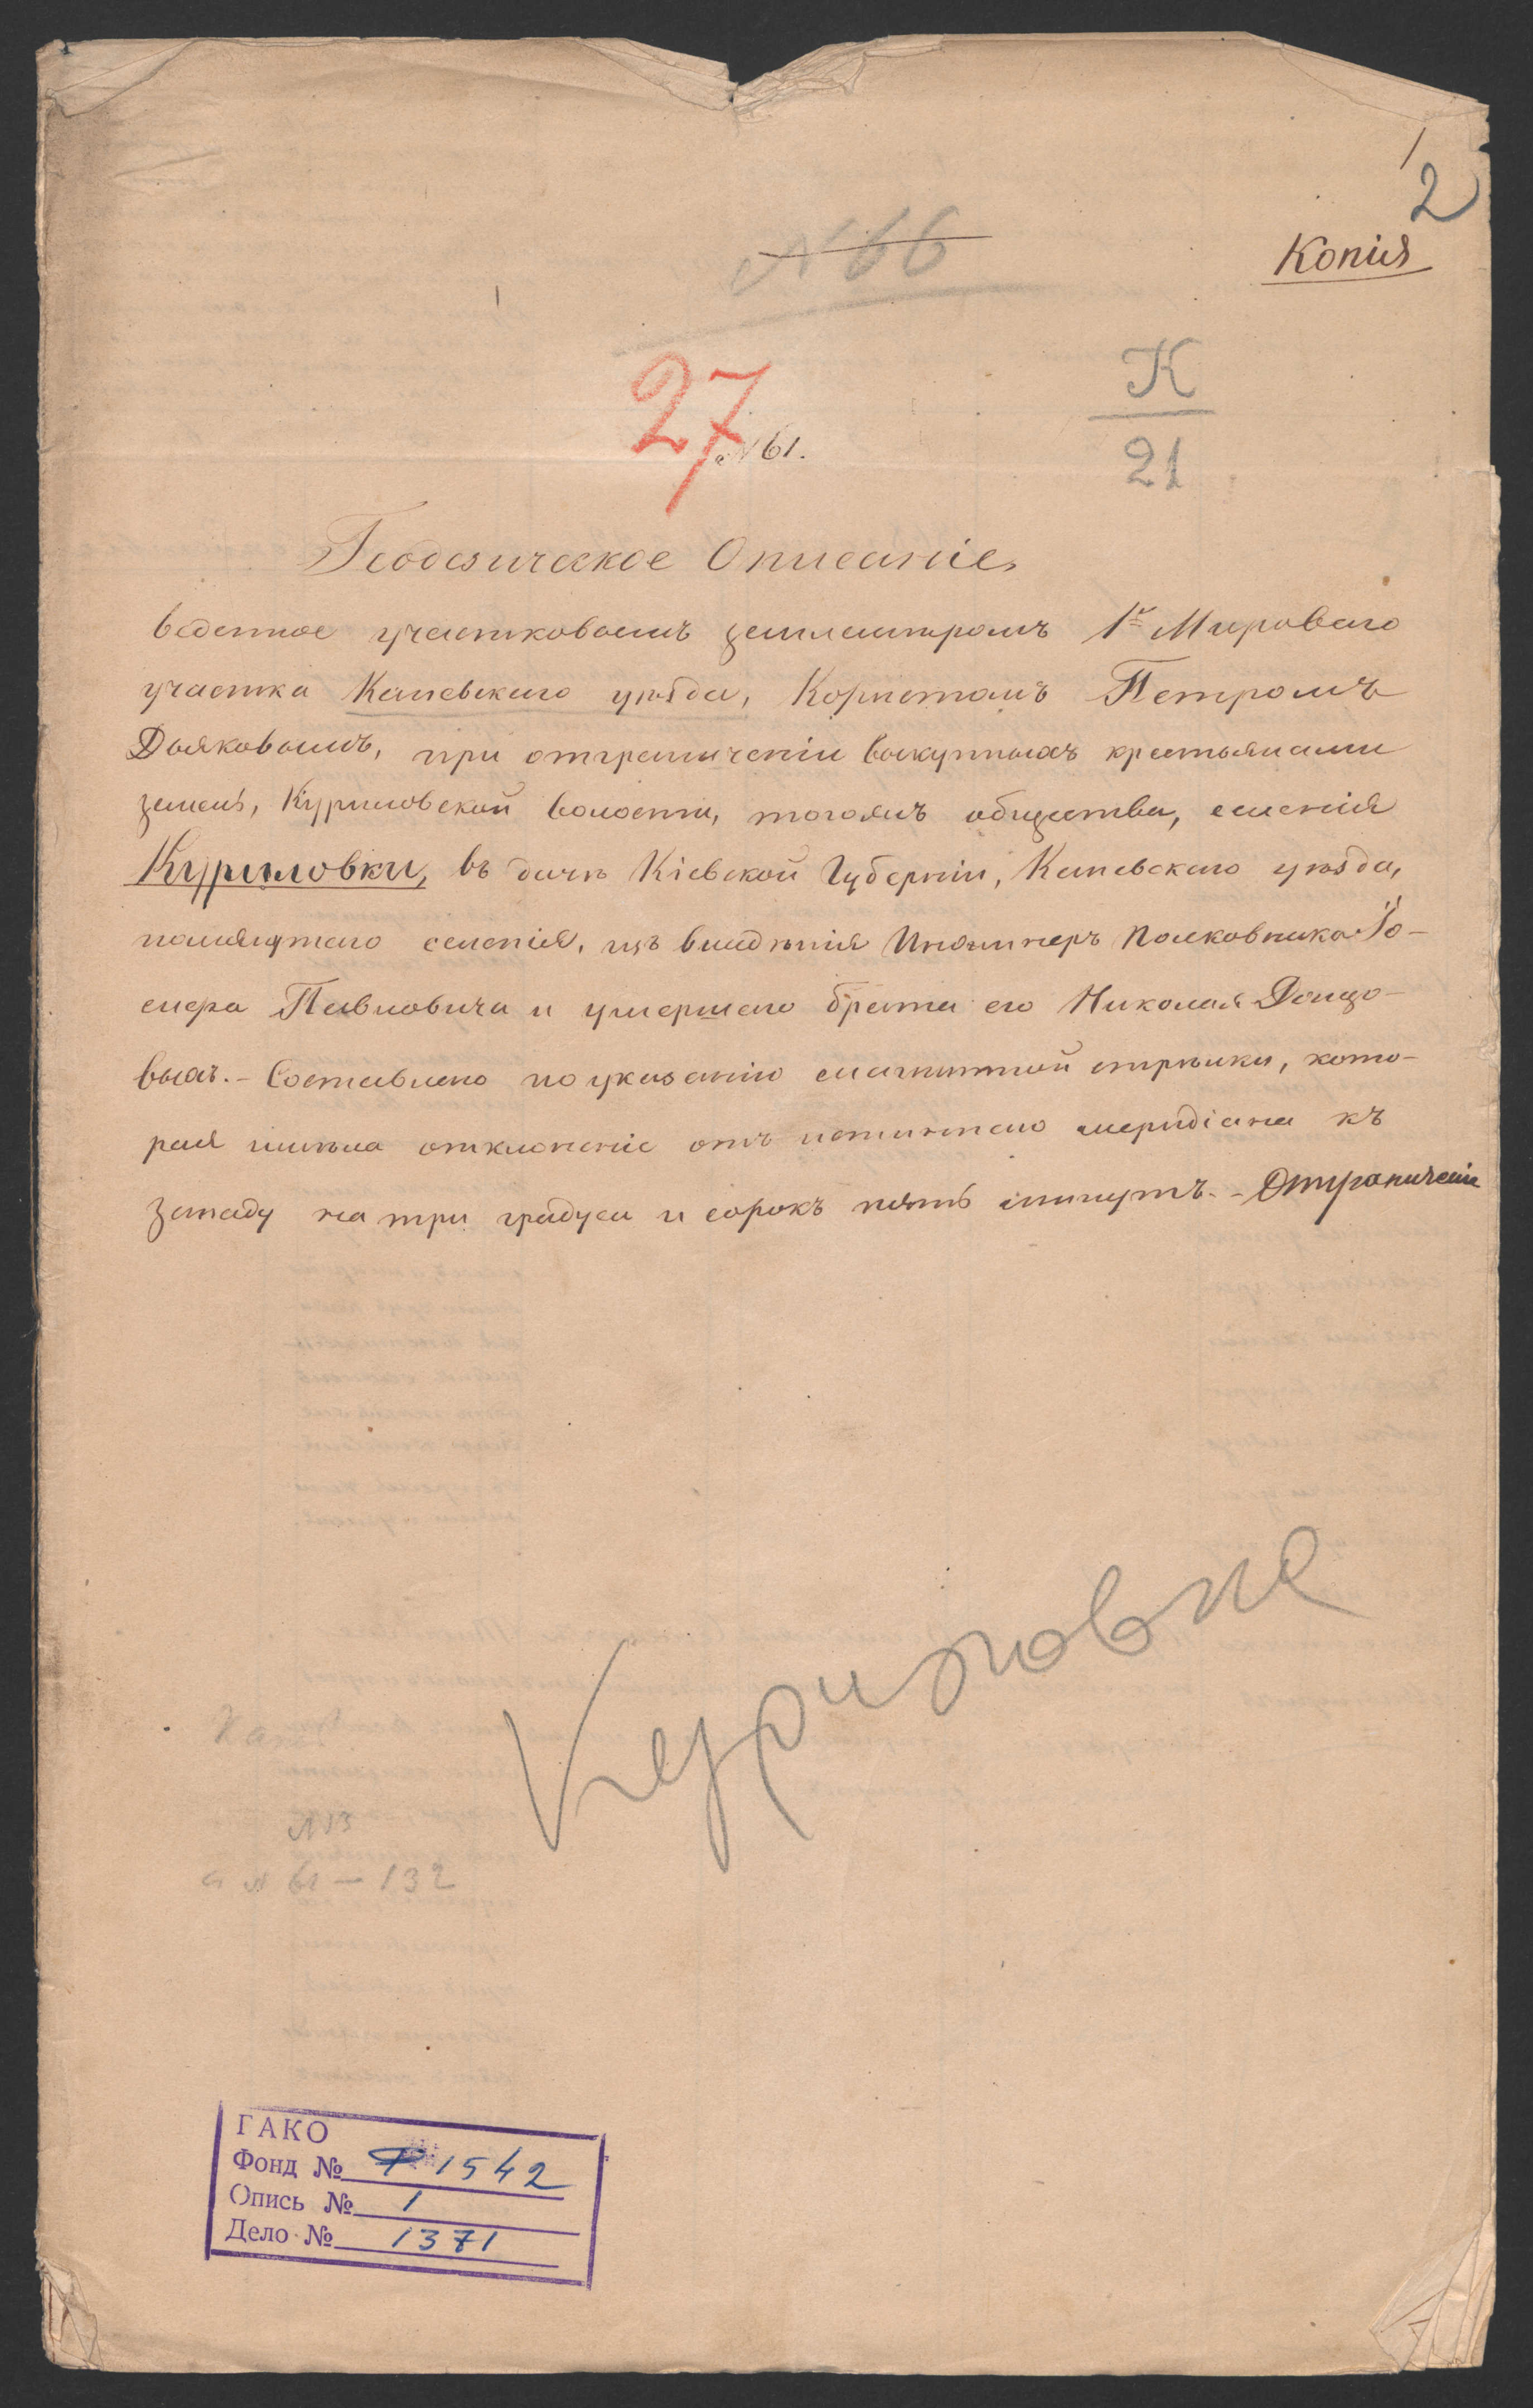 1
2
Копія
№ 66
27
№ 61.
К
21
Геодезическое Описаніе,
веденное участковымъ землемѣромъ 1го Мироваго
участка Каневскаго уѣзда, Корнетомъ Петромъ
Дьяковымъ, при отграниченіи выкупныхъ крестьянами
земель, Куриловской волости, тогожъ общества, селенія
Куриловки, въ дачѣ Кіевской Губерніи, Каневскаго уѣзда,
помянутаго селенія, изъ владѣнія Инженеръ Полковника Го-
мера Павловича и умершаго брата его Николая Донцо-
выхъ. - Составлено по указанію магнитной стрѣлки, кото-
рая имѣла отклоненіе отъ истиннаго меридіана къ
западу на три градуса и сорокъ пять минутъ. - Отграниченіе
Куриловка
№ 61 - 132
ГАКО
Фонд № Ф 1542
Опись № 1
Дело № 1371